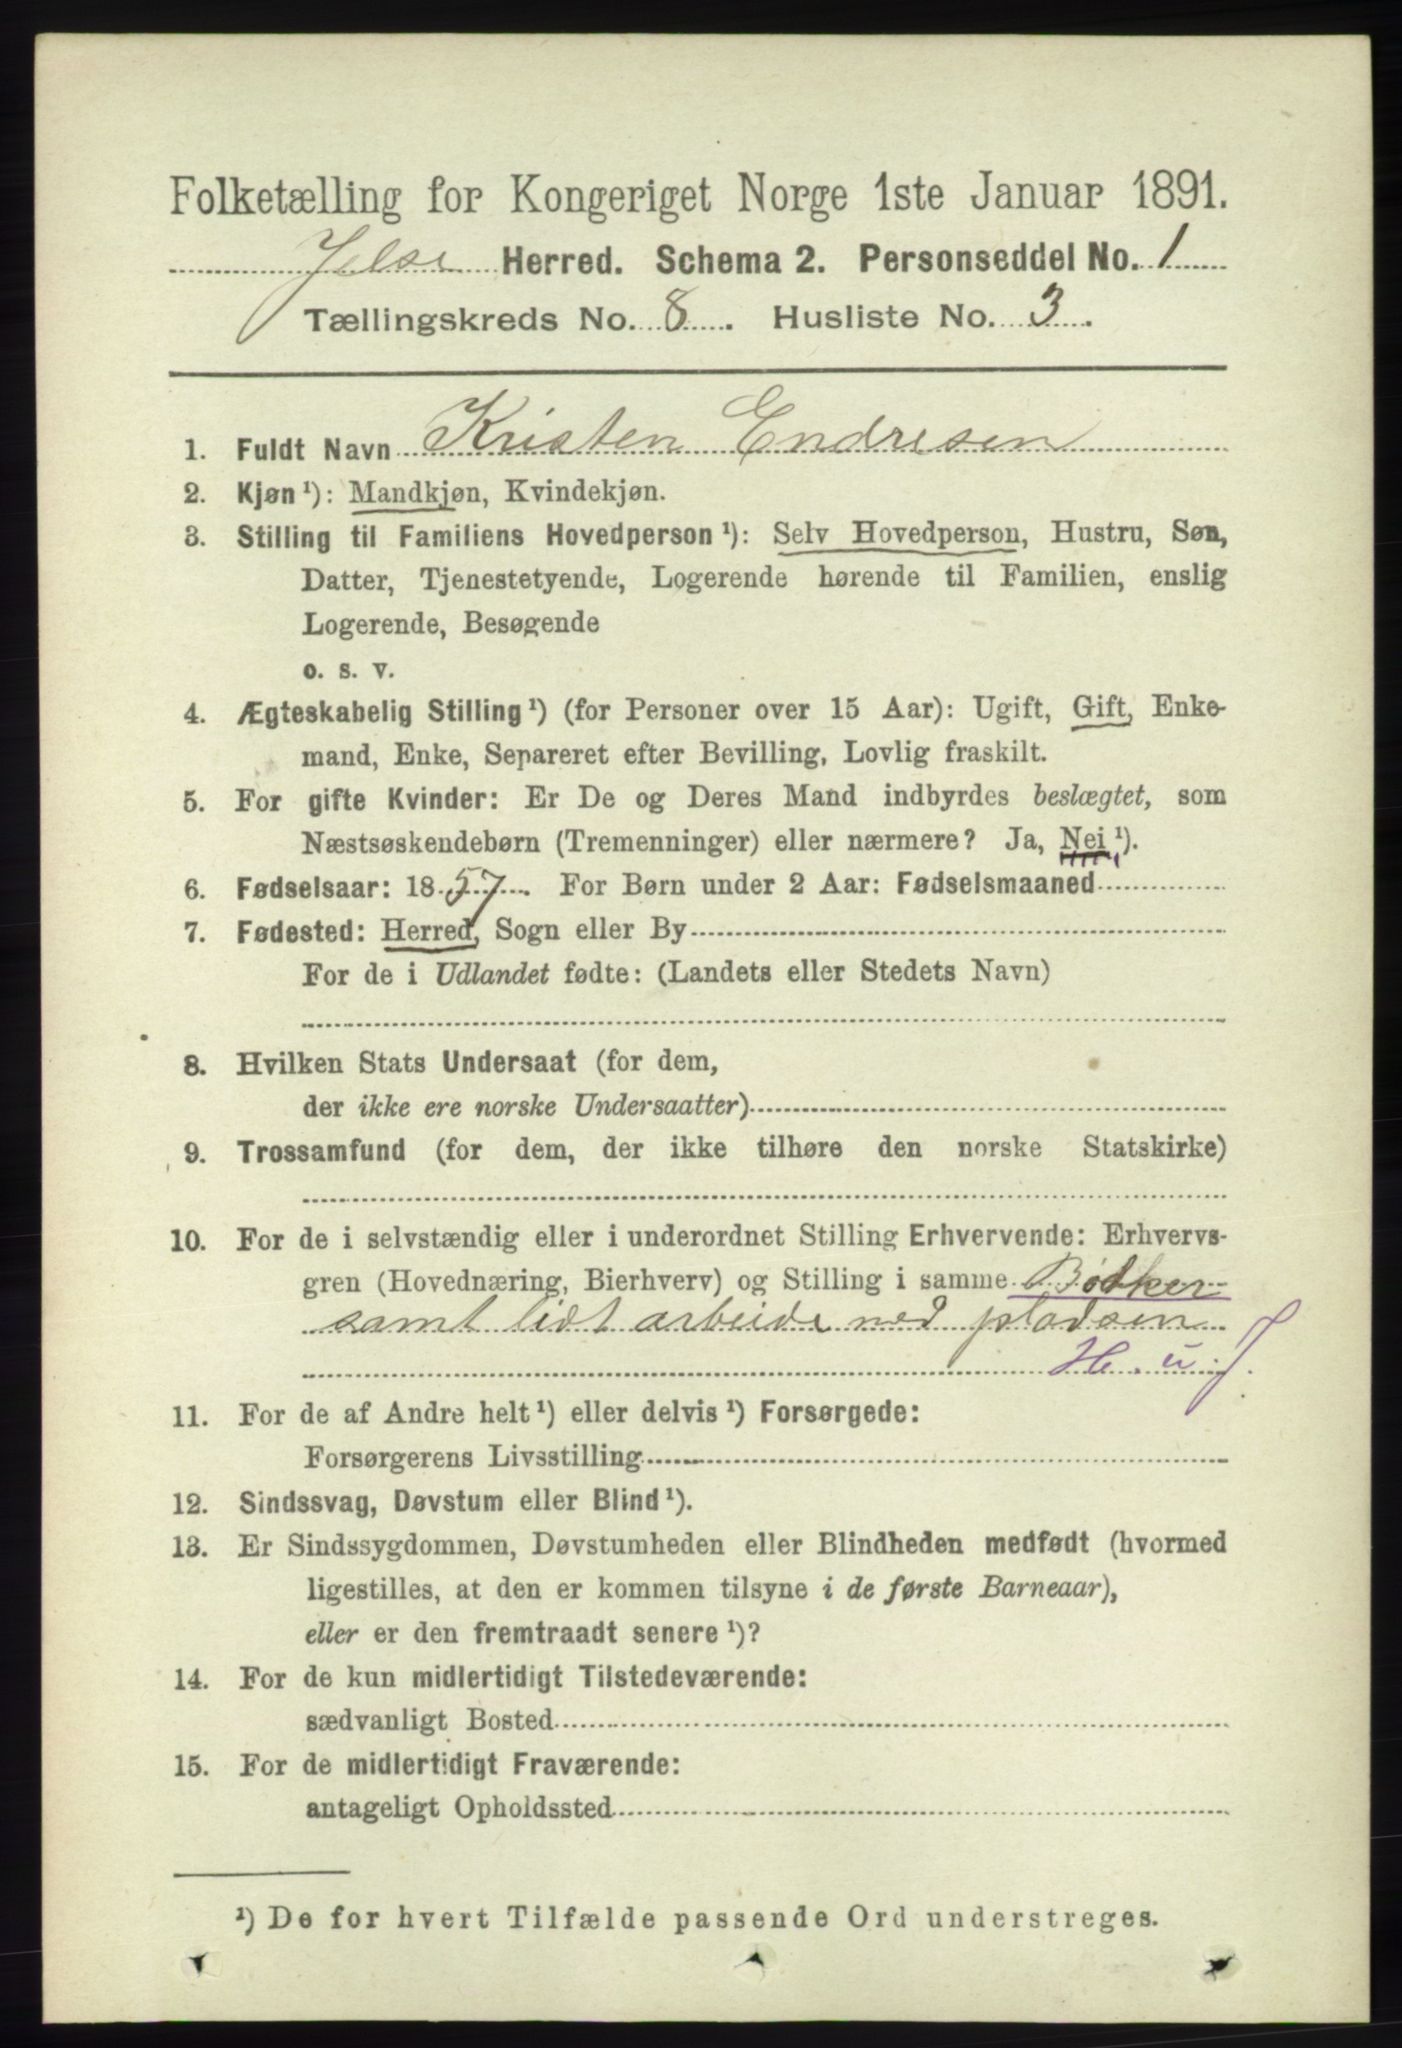 Folketælling for Kongeriget Norge 1ste Januar 1891.
Jelse Herred. Schema 2. Personseddel No. 1
Tællingskreds No. 8. Husliste No. 3.
1. Fuldt Navn Kristen Endresen
2. Kjøn ¹): Mandkjøn, Kvindekjøn.
3. Stilling til Familiens Hovedperson ¹): Selv Hovedperson, Hustru, Søn,
Datter, Tjenestetyende, Logerende hørende til Familien, enslig
Logerende, Besøgende
o. s. v.
4. Ægteskabelig Stilling ¹) (for Personer over 15 Aar): Ugift, Gift, Enke-
mand, Enke, Separeret efter Bevilling, Lovlig fraskilt.
5. For gifte Kvinder: Er De og Deres Mand indbyrdes beslægtet, som
Næstsøskendebørn (Tremenninger) eller nærmere? Ja, Nei ¹).
6. Fødselsaar: 1857. For Børn under 2 Aar: Fødselsmaaned
7. Fødested: Herred, Sogn eller By
For de i Udlandet fødte: (Landets eller Stedets Navn)
8. Hvilken Stats Undersaat (for dem,
der ikke ere norske Undersaatter)
9. Trossamfund (for dem, der ikke tilhøre den norske Statskirke)
10. For de i selvstændig eller i underordnet Stilling Erhvervende: Erhvervs-
gren (Hovednæring, Bierhverv) og Stilling i samme Bødker
samt lidt arbeide ved pladsen
H. u. J.
11. For de af Andre helt ¹) eller delvis ¹) Forsørgede:
Forsørgerens Livsstilling
12. Sindssvag, Døvstum eller Blind ¹).
13. Er Sindssygdommen, Døvstumheden eller Blindheden medfødt (hvormed
ligestilles, at den er kommen tilsyne i de første Barneaar),
eller er den fremtraadt senere ¹)?
14. For de kun midlertidigt Tilstedeværende:
sædvanligt Bosted
15. For de midlertidigt Fraværende:
antageligt Opholdssted
¹) De for hvert Tilfælde passende Ord understreges.